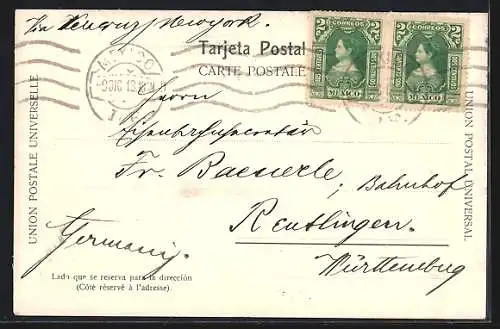 Via Veracruz, Newyork.
Tarjeta Postal
CARTE POSTALE
2 CORREOS 2
DOS CENTAVOS
MEXICO
2 CORREOS 2
DOS CENTAVOS
MEXICO
MEXICO
9 DIC 13
UNION POSTALE UNIVERSELLE
UNION POSTAL UNIVERSAL
Herrn
Eisenbahnsecretär
Fr. Baeuerle; Bahnhof
Reutlingen.
Germany. Württemberg
Lado que se reserva para la dirección
(Côté réservé à l'adresse).